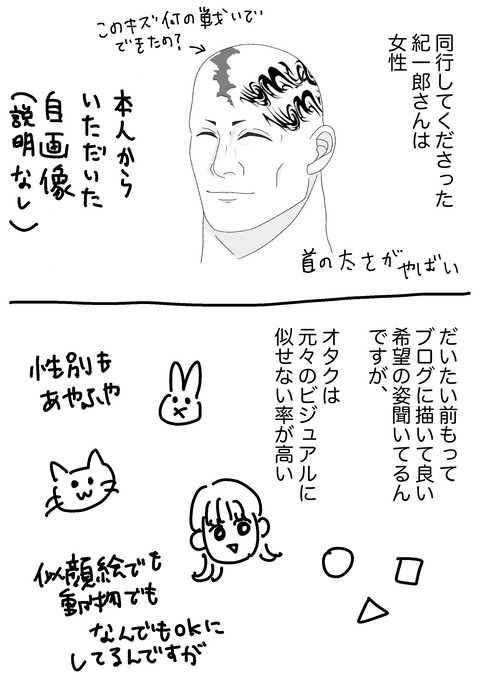 同行してくださった
紀一郎さんは
女性
このキズ何の戦いで
できたの?
本人から
いただいた
自画像
(説明なし)
首の太さがやばい
だいたい前もって
ブログに描いて良い
希望の姿聞いてるん
ですが、
オタクは
元々のビジュアルに
似せない率が高い
性別も
あやふや
似顔絵でも
動物でも
なんでもokに
してるんですが